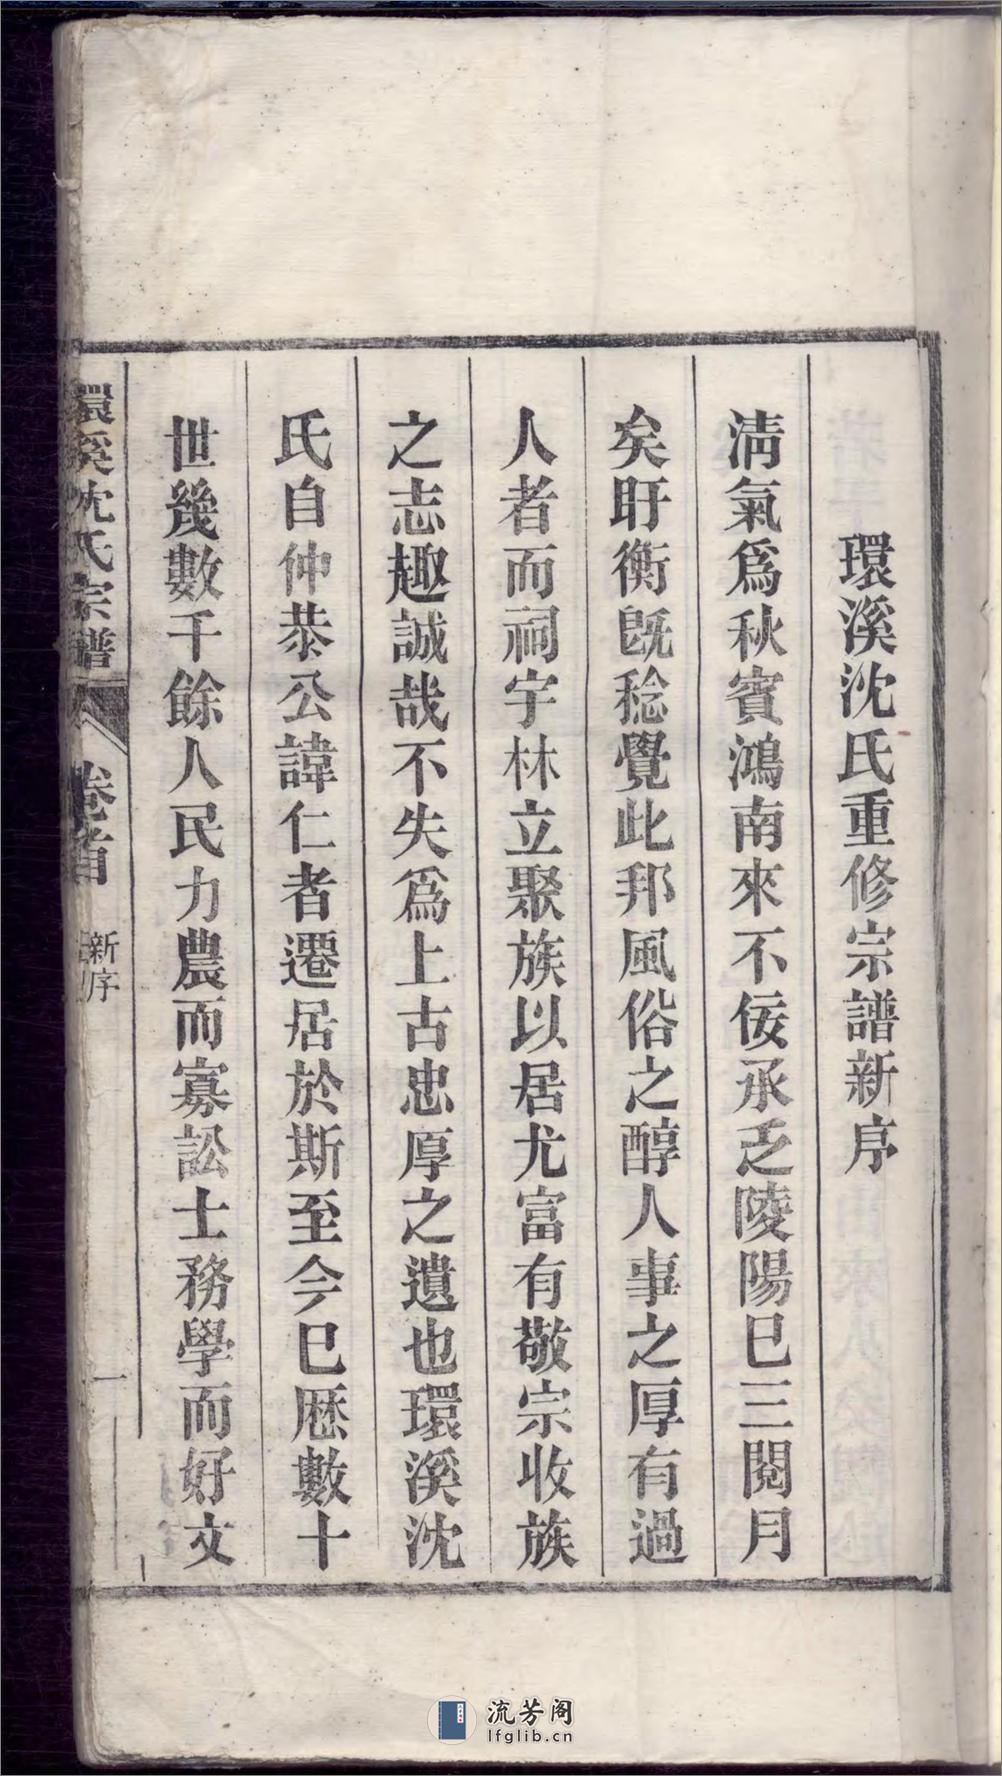 環溪沈氏重修宗譜新序
淸氣爲秋賓鴻南來不佞承乏陵陽巳三閱月
矣盱衡旣稔覺此邦風俗之醇人事之厚有過
人者而祠宇林立聚族以居尤富有敬宗收族
之志趣誠哉不失爲上古忠厚之遺也環溪沈
氏自仲恭公諱仁者遷居於斯至今巳歷數十
世幾數千餘人民力農而寡訟士務學而好文
環溪沈氏宗譜 卷首 新序 一
流芳阁
lfglib.cn